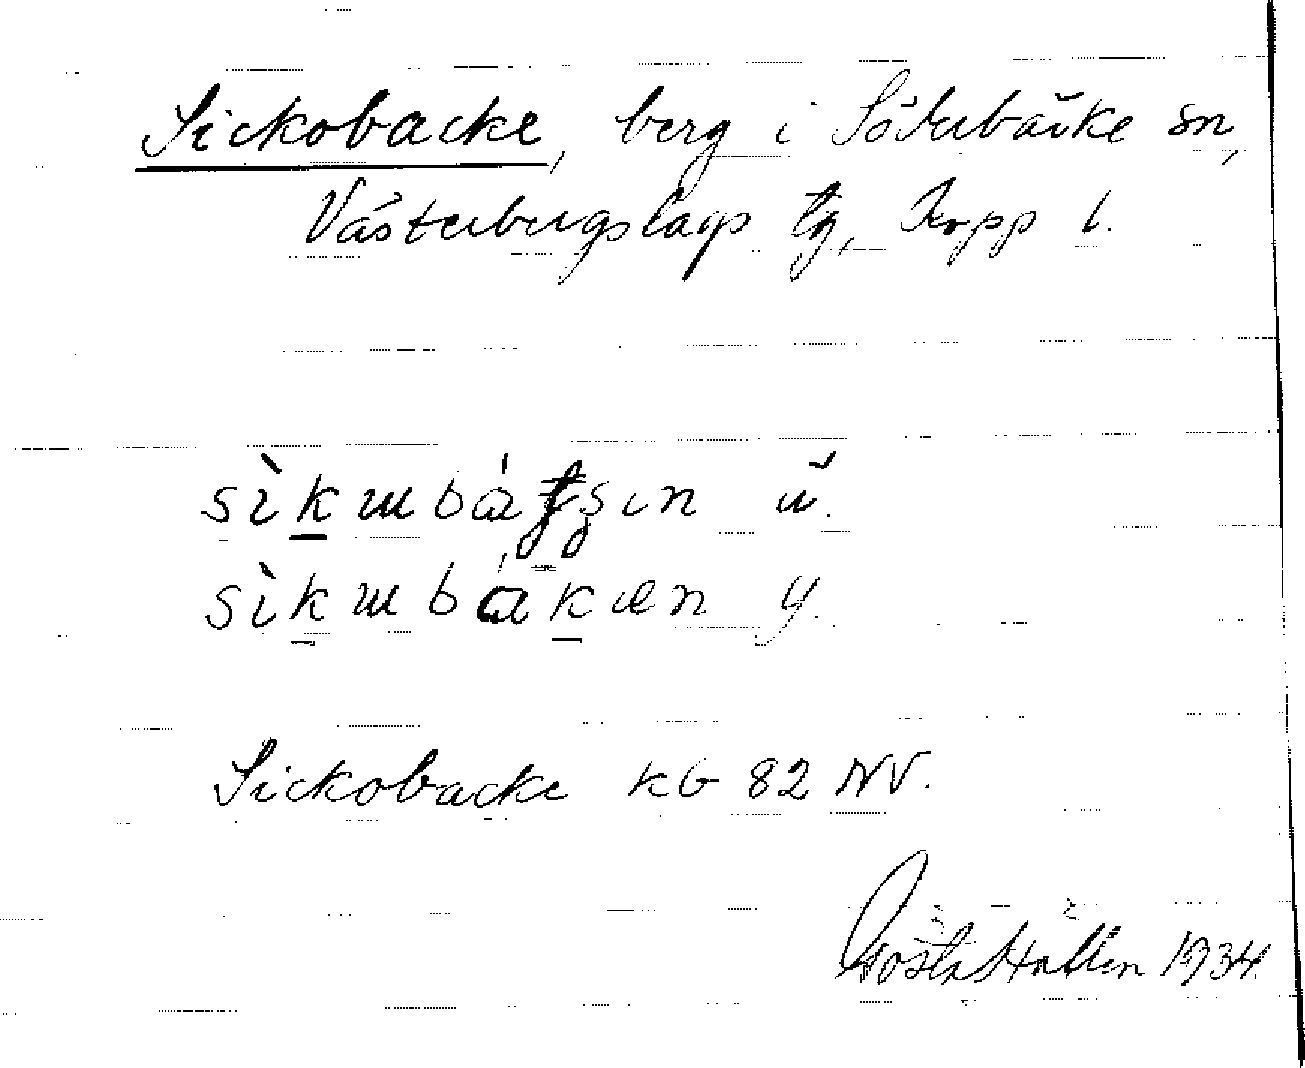 Sickobacke, berg i Söderbärke sn,
Västerbergslags tg, Kopp l.
sìkɯbátʂın ä.
sìkɯbákæn y.
Sickobacke KG 82 NV.
Gösta Hallin 1934.